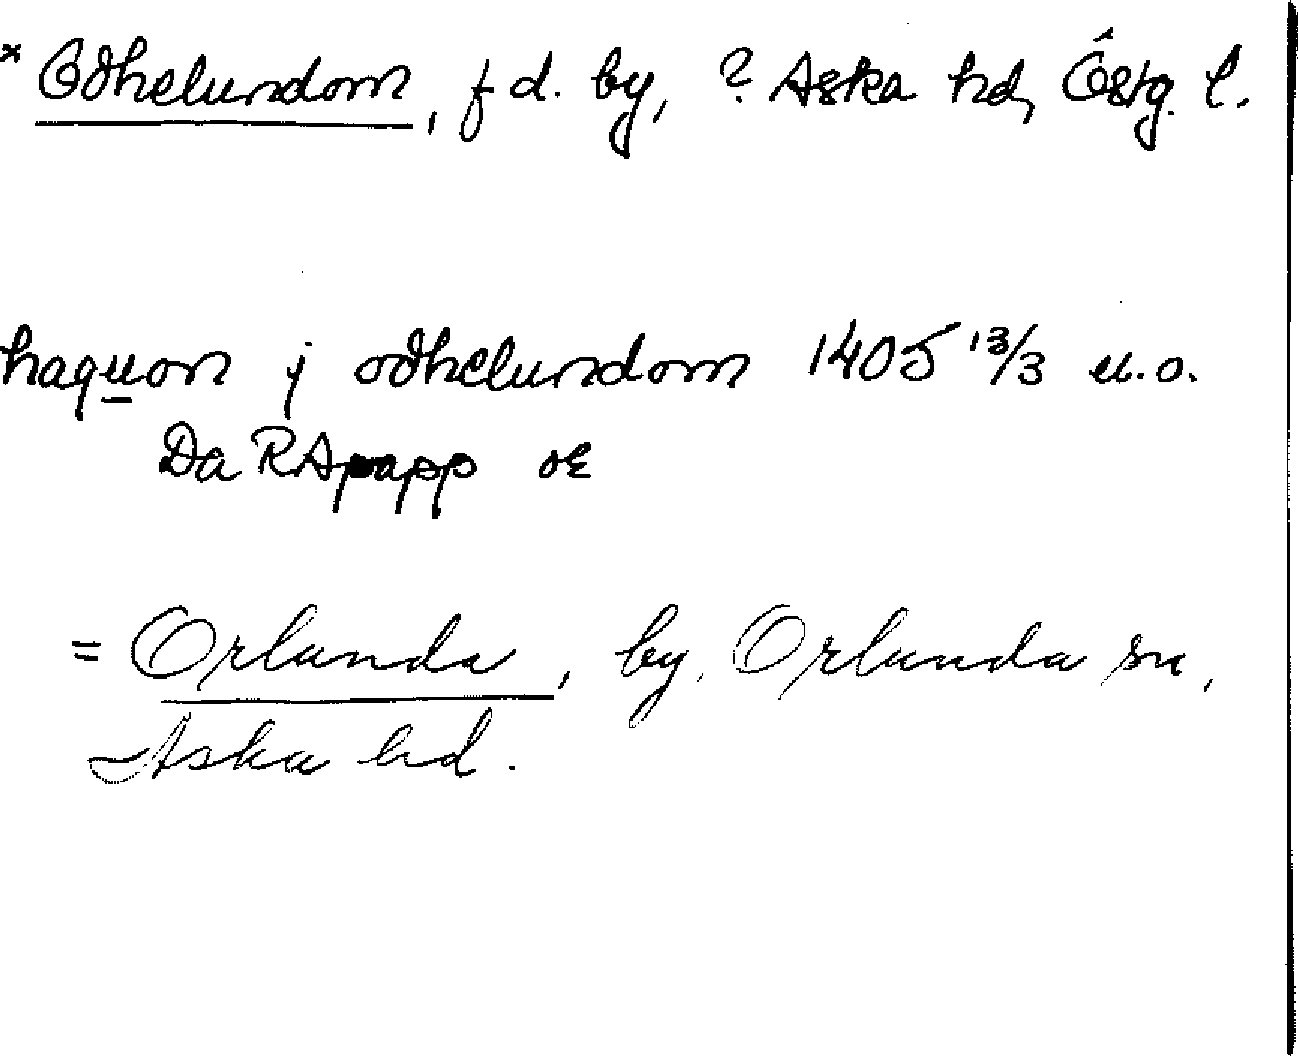 * Odhelundom, f d. by, ? Aska hd, Östg. l.
haquon j odhelundom 1405 13/3 u.o.
Da RApapp or
= Orlunda, by, Orlunda sn,
Aska hd.